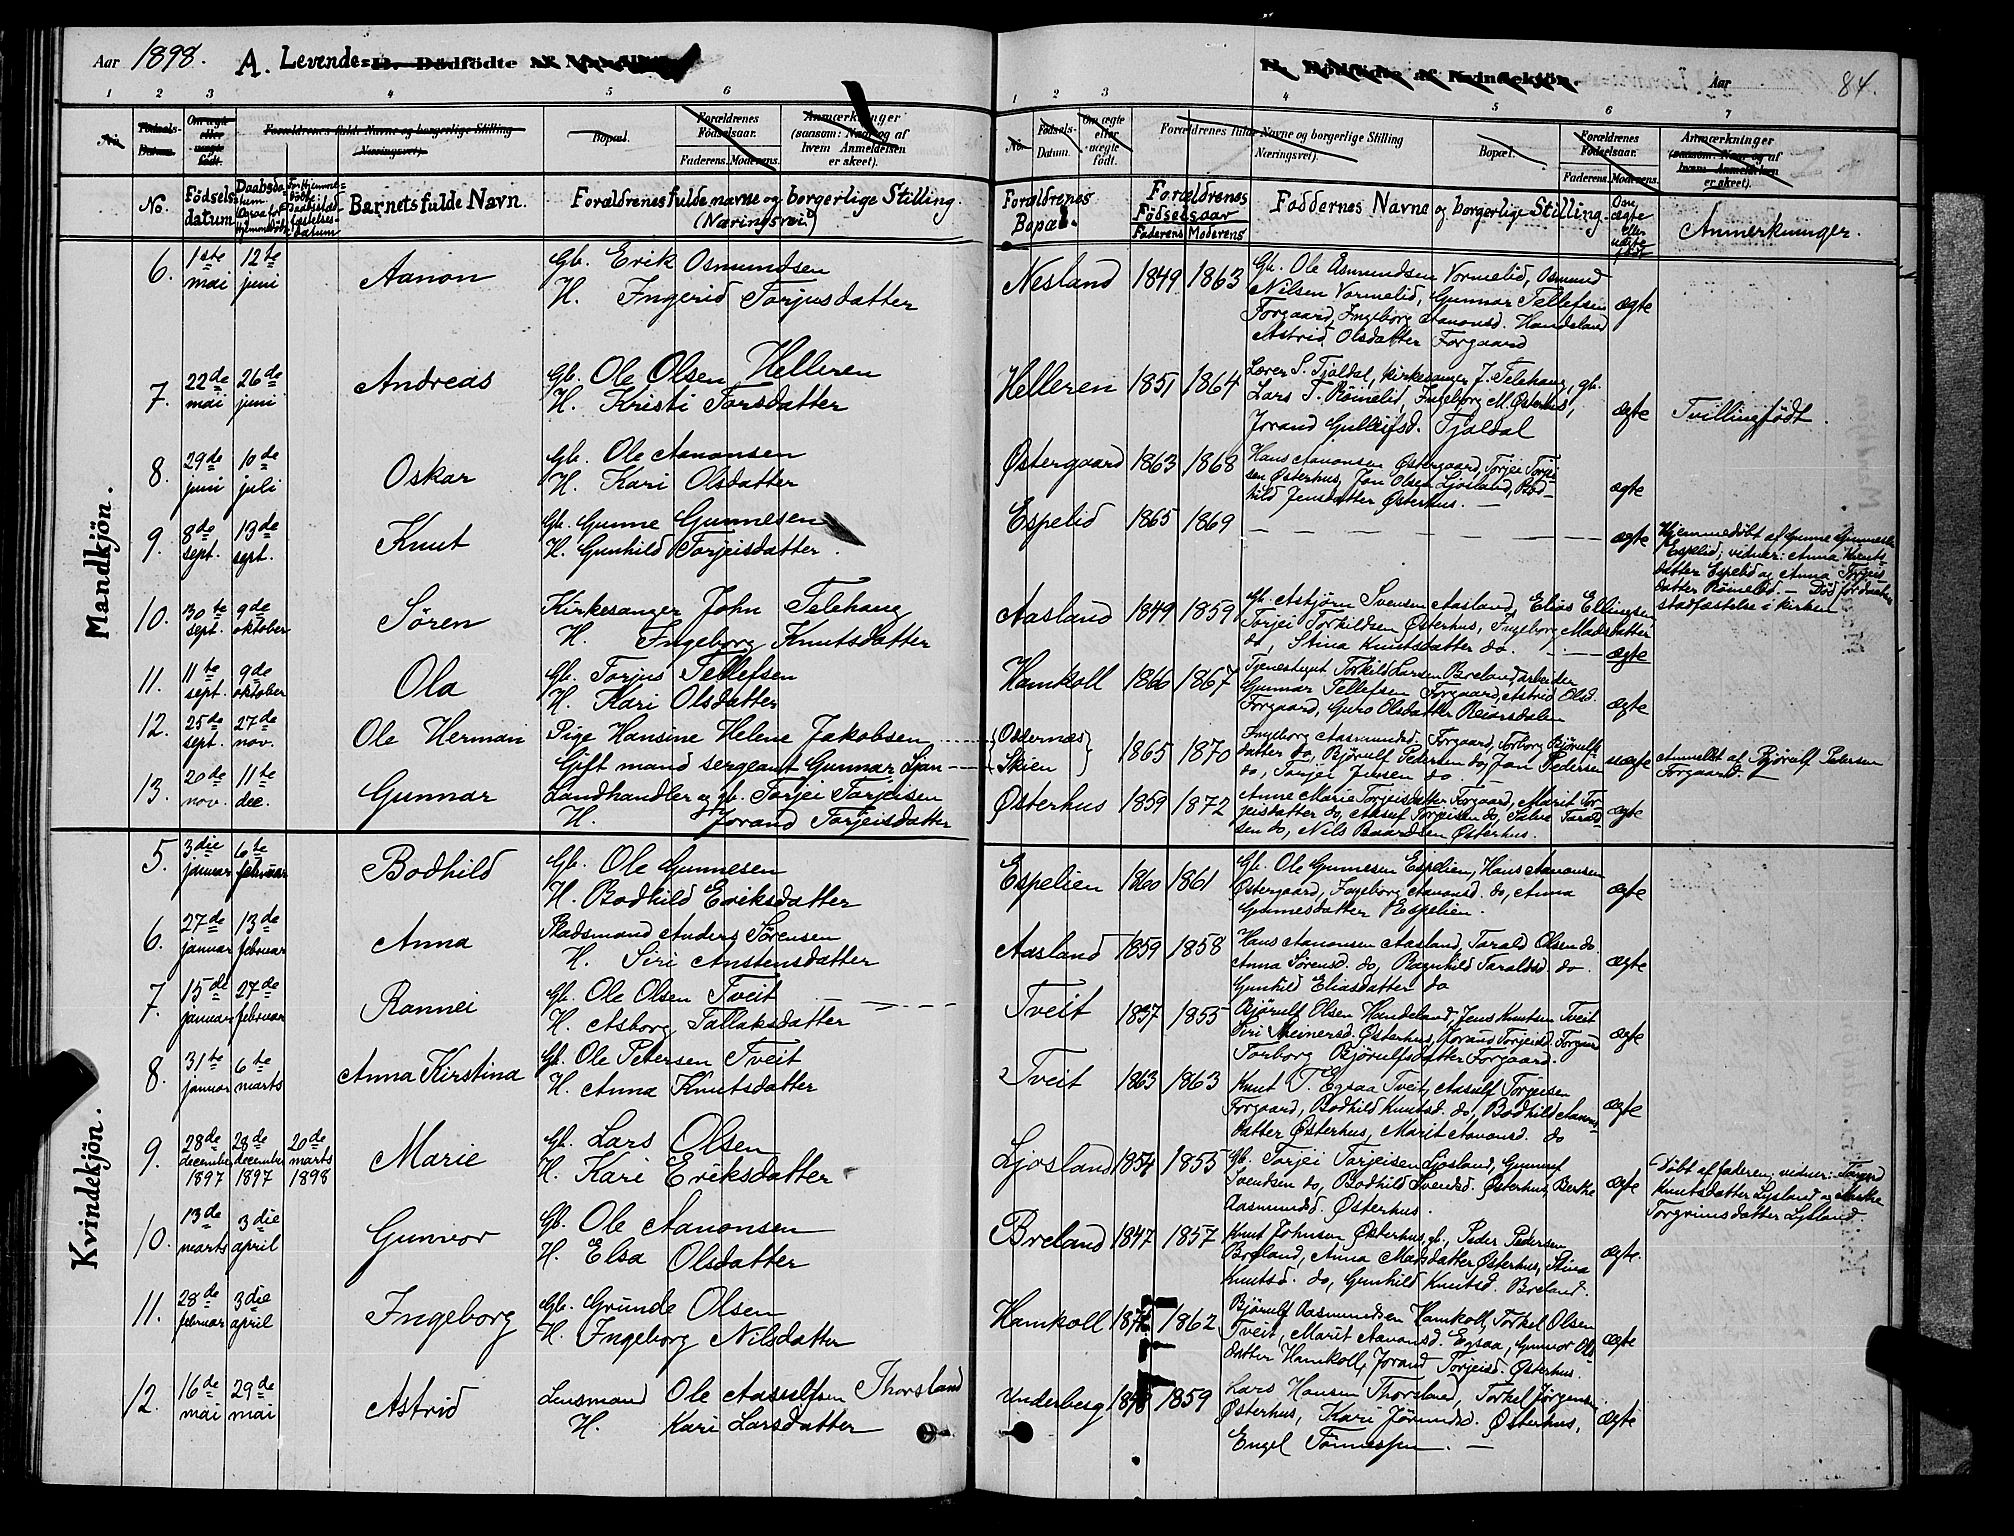 Aar 1898. A. Levende= B. Dödfödte af Mandkjön.
B. Dödfödte af Kvindekjön. Aar 84.
1 2 3 4 5 6
1 2 3 4 5 6 7
No. Födsels-Datum. Om ægte eller uægte födt. Forældrenes fulde Navne og borgerlige Stilling (Næringsvei). Bopæl. Forældrenes Födselsaar. Faderens. Moderens. Anmærkninger (saasom: Navn og af hvem Anmeldelsen er skeet).
No. Födsels-Datum. Om ægte eller uægte födt. Forældrenes fulde Navne og borgerlige Stilling (Næringsvei). Bopæl. Forældrenes Födselsaar. Faderens. Moderens. Anmærkninger (saasom: Navn og af hvem Anmeldelsen er skeet).
No. Födsels datum Daabsdatum Barnets fulde Navn. Forældrenes fulde navne og borgerlige Stilling. (Næringsvei)
Forældrenes Bopæl. Forældrenes Födselsaar Faderens Moderens Faddernes Navne og borgerlige Stilling Om ægte eller uægte födt Anmerkninger.
Mandkjön.
6. 1ste mai 12te juni Aanon Gb. Erik Osmundsen
H. Ingerid Torjusdatter
Nesland 1849 1863 Gb. Ole Osmundsen Vormelid, Osmund
Nilsen Vormelid, Gunnar Tellefsen
Forgaard, Ingeborg Aanonsd. Handeland
Astrid Olsdatter Forgaard ægte
7. 22de mai 26de juni Andreas Gb. Ole Olsen Helleren
H. Kristi Torsdatter
Helleren 1851 1864 Lærer S. Tjaldal, kirkesanger J. Telehaug, gb.
Lars T. Römelid, Ingeborg M. Østerhus,
Jorand Gulleifsd. Tjaldal ægte Tvillingfödt.
8. 29de juni 10de juli Oskar Gb. Ole Aanonsen
H. Kari Olsdatter
Østergaard 1863 1868 Hans Aanonsen Østergaard, Torjei Torjei-
sen Østerhus, Jon Olsen Ljosland, Bod-
hild Jensdatter Østerhus. — ægte
9. 8de sept. 13de sept. Knut Gb. Gunne Gunnesen
H. Gunhild Torjeisdatter.
Espelid 1865 1869 — — — — ægte Hjemmedöbt af Gunne Gunnesen
Espelid; vidner: Anna Knuts-
datter Espelid og Anna Torjeis-
datter Römelid. — Död för daabens
stadfæstelse i kirken
10. 30te sept. 9de oktober Sören Kirkesanger John Telehaug
H. Ingeborg Knutsdatter
Aasland 1849 1859 Gb. Asbjörn Svensen Aasland, Elias Ellingsen
Torjei Torkildsen Østerhus, Ingeborg Madsdatter
do, Stina Knutsdatter do. — ægte
11. 11te sept. 9de oktober Ola Gb. Torjus Tellefsen
H. Kari Olsdatter
Hamkoll 1866 1867 Tjenestegut Torkild Larsen Breland, arbeider
Gunnar Tellefsen Forgaard, Astrid Olsd.
Forgaard, Guro Olsdatter Reiarsdalen ægte
12. 25de sept. 27de nov. Ole Herman Pige Hansine Helene Jakobsen
Gift mand sergeant Gunnar Ljan
Oddernæs
Skien 1865 1870 Ingeborg Aasmundsd. Forgaard, Torborg Björulfs-
datter do, Björulf Pedersen do, Jon Pedersen
do, Torjei Jensen do uægte Anmeldt af Björulf Petersen
Forgaard. —
13. 20de nov. 11te dec. Gunnar Landhandler og gb. Torjei Torjeisen
H. Jorand Torjeisdatter
Østerhus 1859 1872 Anne Marie Torjeisdatter Forgaard, Marit Tor-
jeisdatter do, Aasulf Torjeisen do, Salve Tarald-
sen do, Nils Baardsen Østerhus. ægte
Kvindekjön.
5. 3die januar 6te februar Bodhild Gb. Ole Gunnesen
H. Bodhild Eriksdatter
Espelien 1860 1861 Gb. Ole Gunnesen Espelien, Hans Aanonsen
Østergaard, Ingeborg Aanonsd. do, Anna
Gunnesdatter Espelien. ægte
6. 27de januar 13de februar Anna Pladsmand Anders Sörensen
H. Siri Anstensdatter
Aasland 1859 1858 Hans Aanonsen Aasland, Tarald Olsen do
Anna Sörensd. do, Ragnhild Taraldsd. do
Gunhild Eliasdatter do ægte
7. 15de januar 27de februar Rannei Gb. Ole Olsen Tveit
H. Asborg Tallaksdatter
Tveit 1837 1855 Björulf Olsen Handeland, Jens Knutsen Tveit
Siri Reinersd. Østerhus, Jorand Torjeisd. Forgaard
Torborg Björulfsdatter Forgaard. ægte
8. 31te januar 6te marts Anna Kirstina Gb. Ole Petersen Tveit
H. Anna Knutsdatter
Tveit 1863 1863 Knut T. Egsaa Tveit, Aasulf Torjeisen
Forgaard, Bodhild Knutsd. do, Bodhild Aanons-
datter Østerhus, Marit Aanonsd. do ægte
9. 28de december 1897 28de december 1897 20de marts 1898 Marie Gb. Lars Olsen
H. Kari Eriksdatter
Ljosland 1854 1855 Gb. Torjei Torjeisen Ljosland, Gunnuf
Svendsen do, Bodhild Svendsd. Østerhus, Berthe
Aasmundsd. Østerhus. ægte Döbt af faderen; vidner: Torgerd
Knutsdatter Ljosland og Marthe
Torgrimsdatter Ljosland.
10. 13de marts 3die april Gunvor Gb. Ole Aanonsen
H. Elsa Olsdatter
Breland 1847 1857 Knut Johnsen Østerhus, gb. Peder Pedersen
Breland, Anna Madsdatter Østerhus, Stina
Knutsd. do, Gunhild Knutsd. Breland. ægte.
11. 28de februar 3die april Ingeborg Gb. Grunde Olsen
H. Ingeborg Nilsdatter
Hamkoll 1872 1862 Björulf Aasmundsen Hamkoll, Torkel Olsen
Tveit, Marit Aanonsd. Egsaa, Gunvor Ols-
datter Hamkoll, Jorand Torjeisd. Østerhus. ægte
12. 16de mai 29de mai Astrid Lensmand Ole Aasulfsen Thorsland
H. Kari Larsdatter
Underberg 1859 Lars Hansen Thorsland, Torkel Jörgensen
Østerhus, Kari Jörundsd. Østerhus,
Engel Tönnessen. — ægte